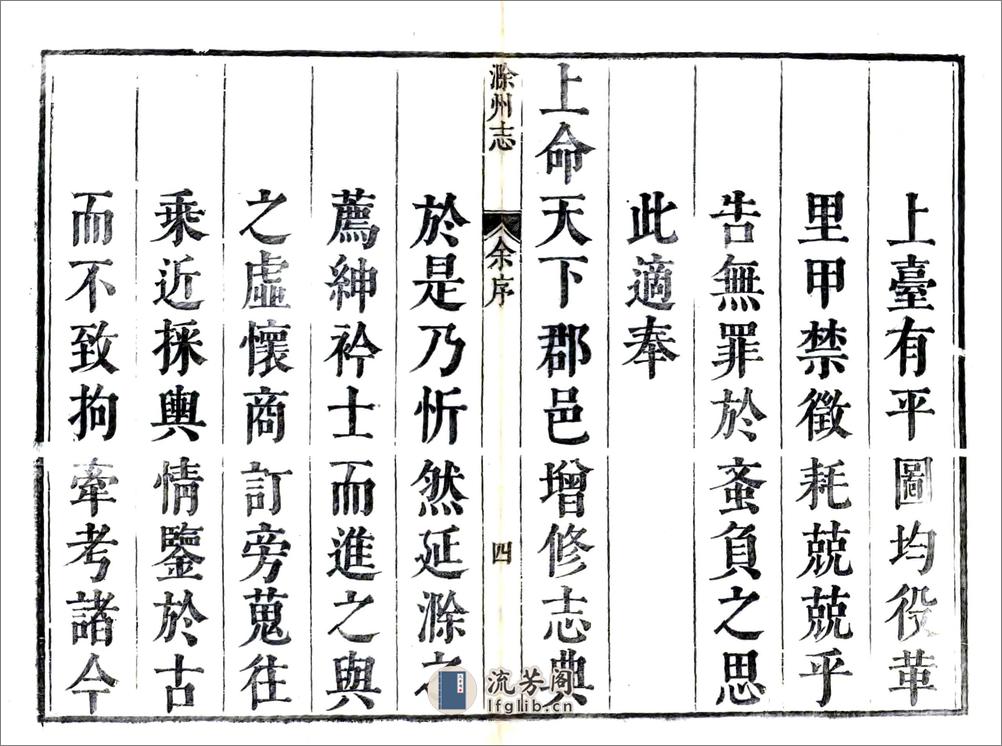 上臺有平圖均役革
里甲禁徵耗兢兢乎
告無罪於蚉負之思
此適奉
上命天下郡邑增修志典
滁州志
余序
四
於是乃忻然延滁之
薦紳衿士而進之與
之虛懷商訂旁蒐往
乘近採輿情鑒於古
而不致拘牽考諸今
流芳阁
lfglib.cn